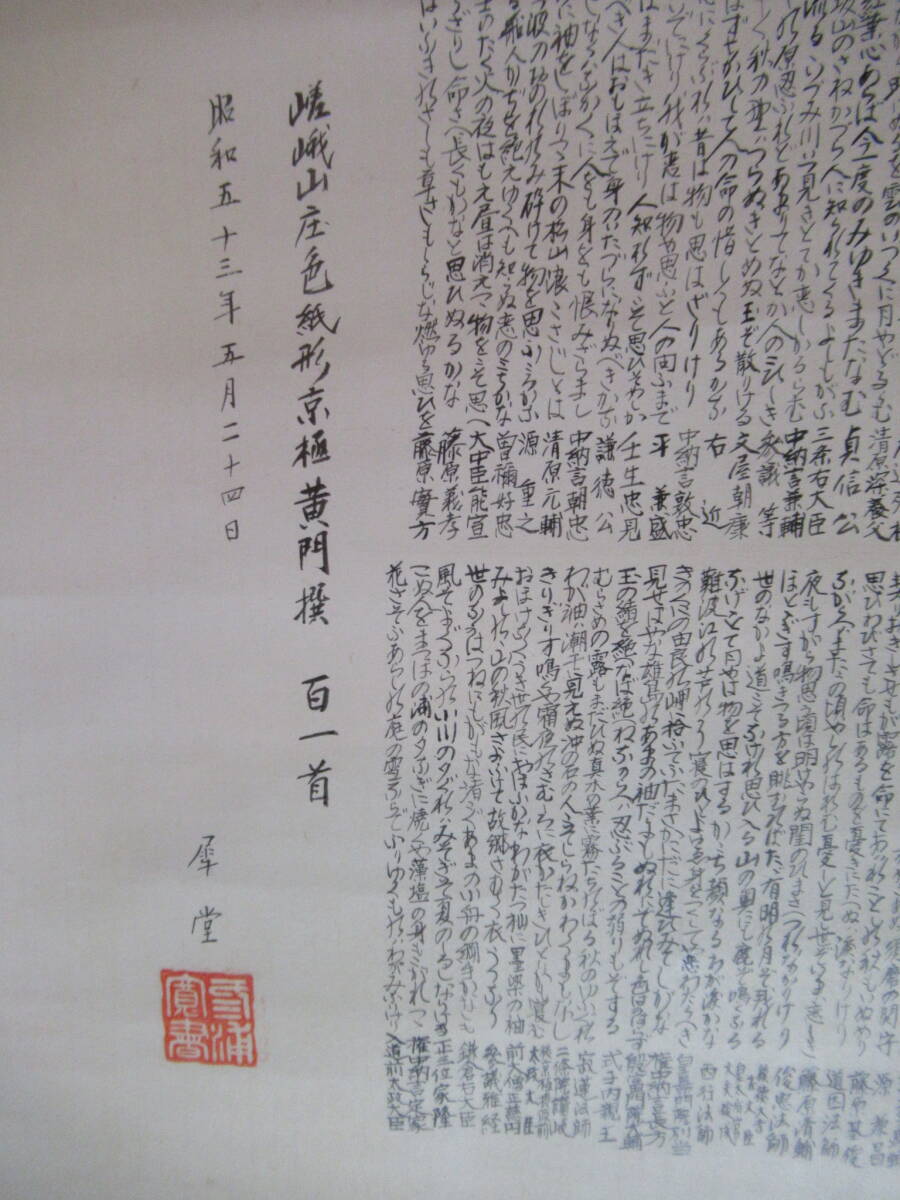 ぬるを雲のいづくに月やどるらむ 清原深養父
紅葉心あらば今一度のみゆきまたなむ 貞信公
坂山のさねかづら人に知られでくるよしもがな 三条右大臣
流るゝいづみ川いつ見きとてか恋しかるらむ 中納言兼輔
の原忍ぶれどあまりてなどか人のこひしき 参議等
く秋の野はつらぬきとめぬ玉ぞ散りける 文屋朝康
はずちかひてし人の命の惜しくもあるかな 右近
にくらぶれば昔は物も思はざりけり 中納言敦忠
いでにけり我が恋は物や思ふと人の問ふまで 平兼盛
はまだき立ちにけり人知れずこそ思ひそめしか 壬生忠見
べき人はおもほえで身のいたづらになりぬべきかな 謙徳公
しなくばなかなかに人をも身をも恨みざらまし 中納言朝忠
に袖をしぼりつゝ末の松山浪こさじとは 清原元輔
波のおのれのみ砕けて物を思ふころかな 源重之
る舟人かぢを絶えゆくへも知らぬ恋のみちかな 曽禰好忠
士のたく火の夜はもえ昼は消えつゝ物をこそ思へ 大中臣能宣
ざりし命さへ長くもがなと思ひぬるかな 藤原義孝
はいぶきのさしも草さしもしらじな燃ゆる思ひを 藤原實方
契りおきしさせもが露を命にてあはれことしの秋もいぬめり 藤原基俊
思ひわびさても命はあるものを憂きにたへぬは涙なりけり 道因法師
ながらへばまたこの頃やしのばれむ憂しと見し世ぞいまは恋しき 藤原清輔
夜もすがら物思ふ頃は明けやらぬ閨のひまさへつれなかりけり 俊恵法師
ほとゝぎす鳴きつる方を眺むればたゞ有明の月ぞ残れる
世のなかよ道こそなけれ思ひ入る山の奥にも鹿ぞ鳴くなる
なげゝとて月やは物を思はするかこち顔なるわが涙かな 西行法師
難波江の芦のかり寝のひとよゆゑ身をつくしてや恋わたるべき
見せばやな雄島のあまの袖だにもぬれにぞぬれし色はかはらず 殷富門院大輔
玉の緒よ絶へなば絶へねながらへば忍ぶることの弱りもぞする 式子内親王
むらさめの露もまだひぬ真木の葉に霧たちのぼる秋のゆふぐれ 寂蓮法師
わが袖は潮干に見えぬ沖の石の人こそしらねかわくまもなし 二條院讃岐
きりぎりす鳴くや霜夜のさむしろに衣かたしきひとりかも寝む
おほけなくうき世の民におほふかなわがたつ杣に墨染の袖 前大僧正慈円
みよしのゝ山の秋風さよふけて故郷さむく衣うつなり 参議雅経
世のなかはつねにもがもな渚こぐあまの小舟の綱手かなしも 鎌倉右大臣
風そよぐならの小川の夕ぐれはみそぎぞ夏のしるしなりける 正三位家隆
こぬ人をまつほの浦の夕なぎに焼くや藻塩の身もこがれつゝ 権中納言定家
花さそふあらしの庭の雪ならでふりゆくものはわがみなりけり 入道前太政大臣
嵯峨山庄色紙形京極黄門撰 百一首
昭和五十三年五月二十四日
犀堂